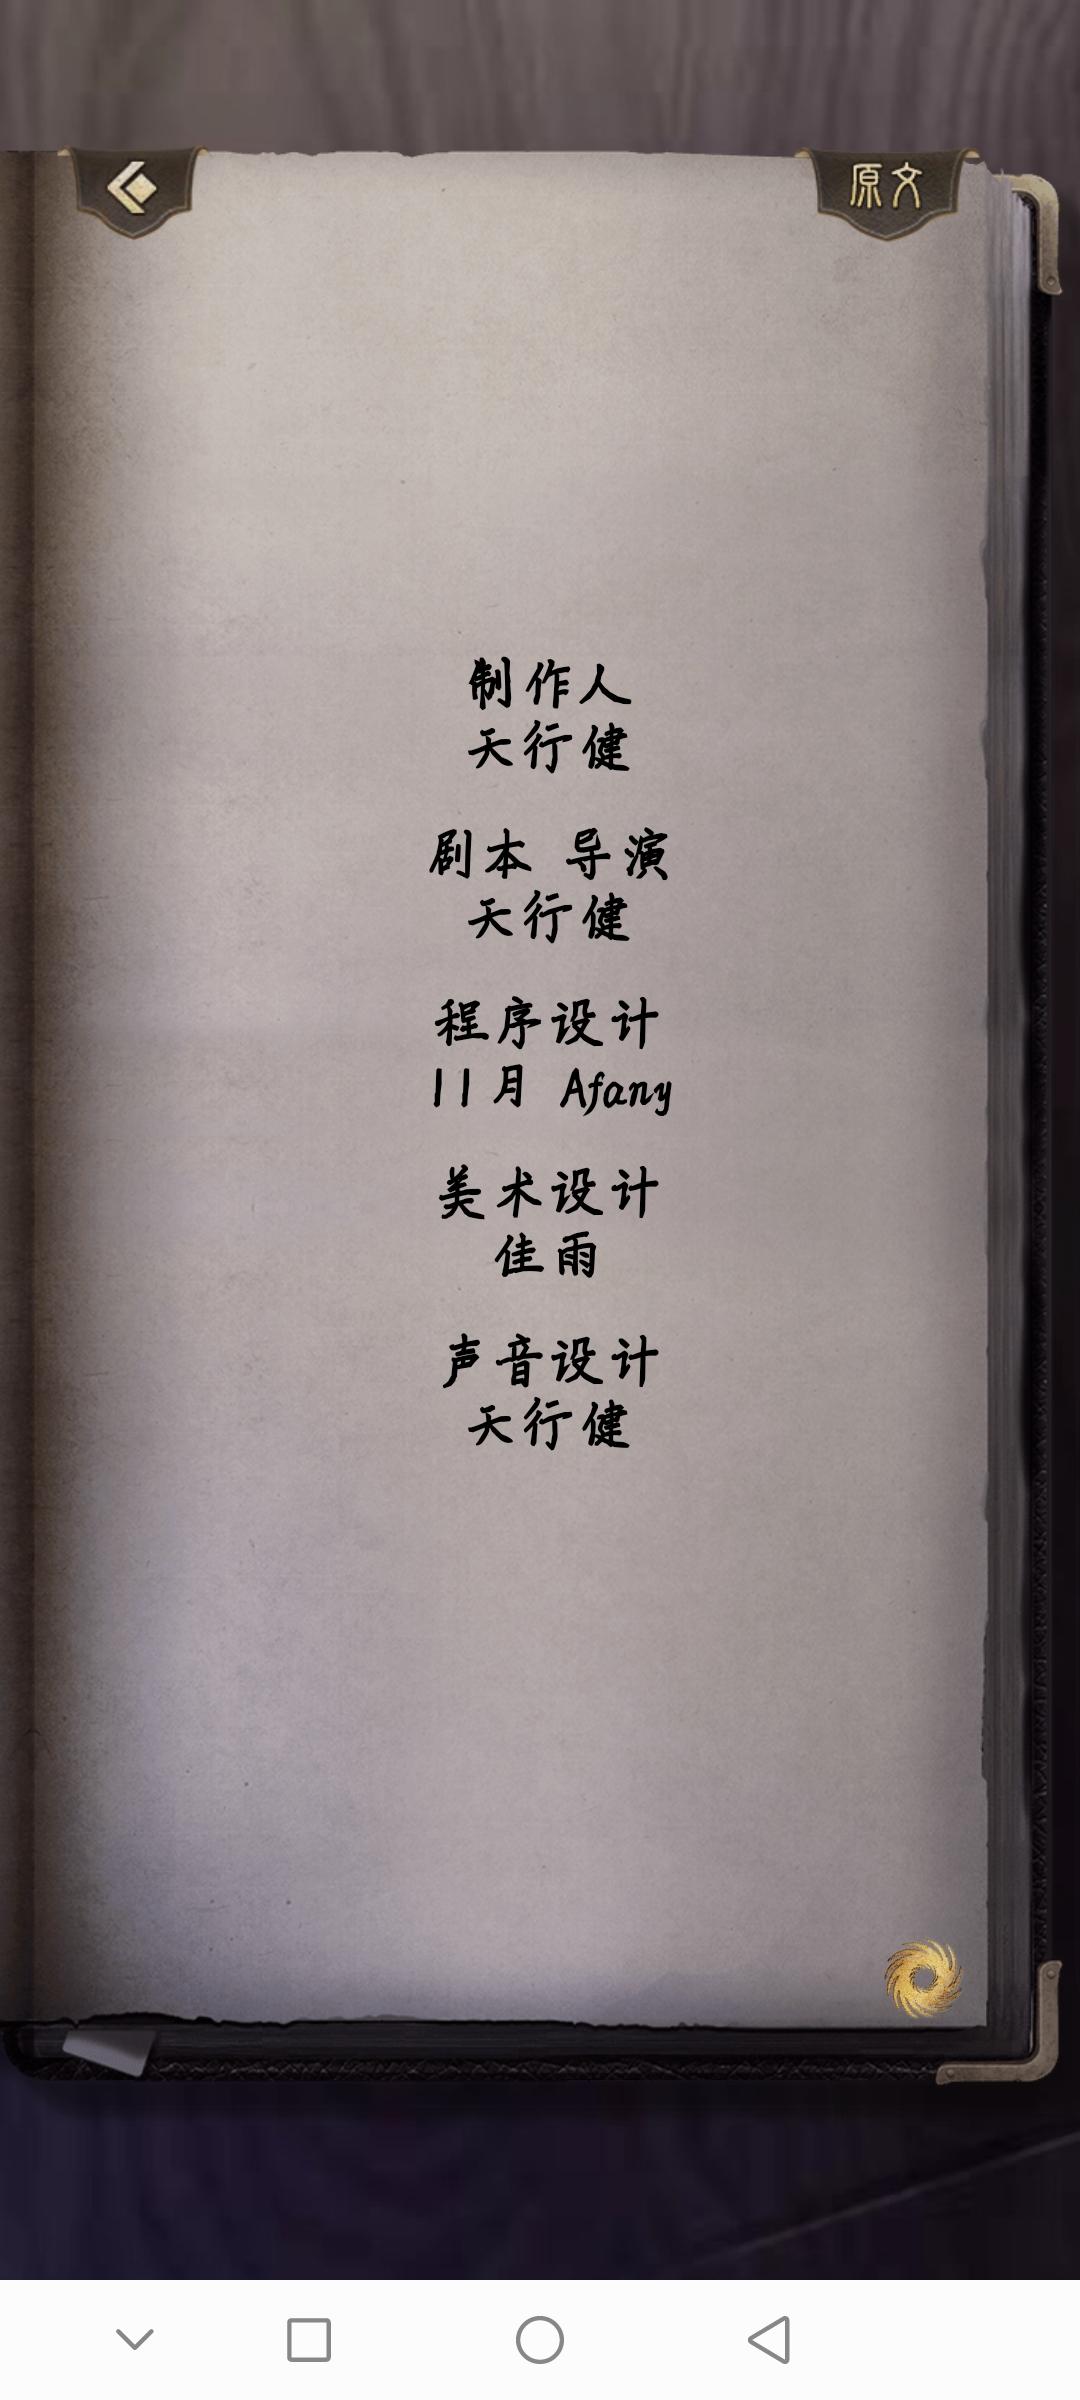 原文
制作人
天行健
剧本 导演
天行健
程序设计
11月 Afany
美术设计
佳雨
声音设计
天行健